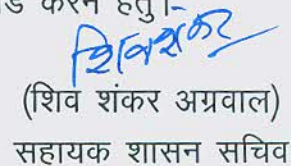 ड करने हेतु।
शिवशंकर
(शिव शंकर अग्रवाल)
सहायक शासन सचिव